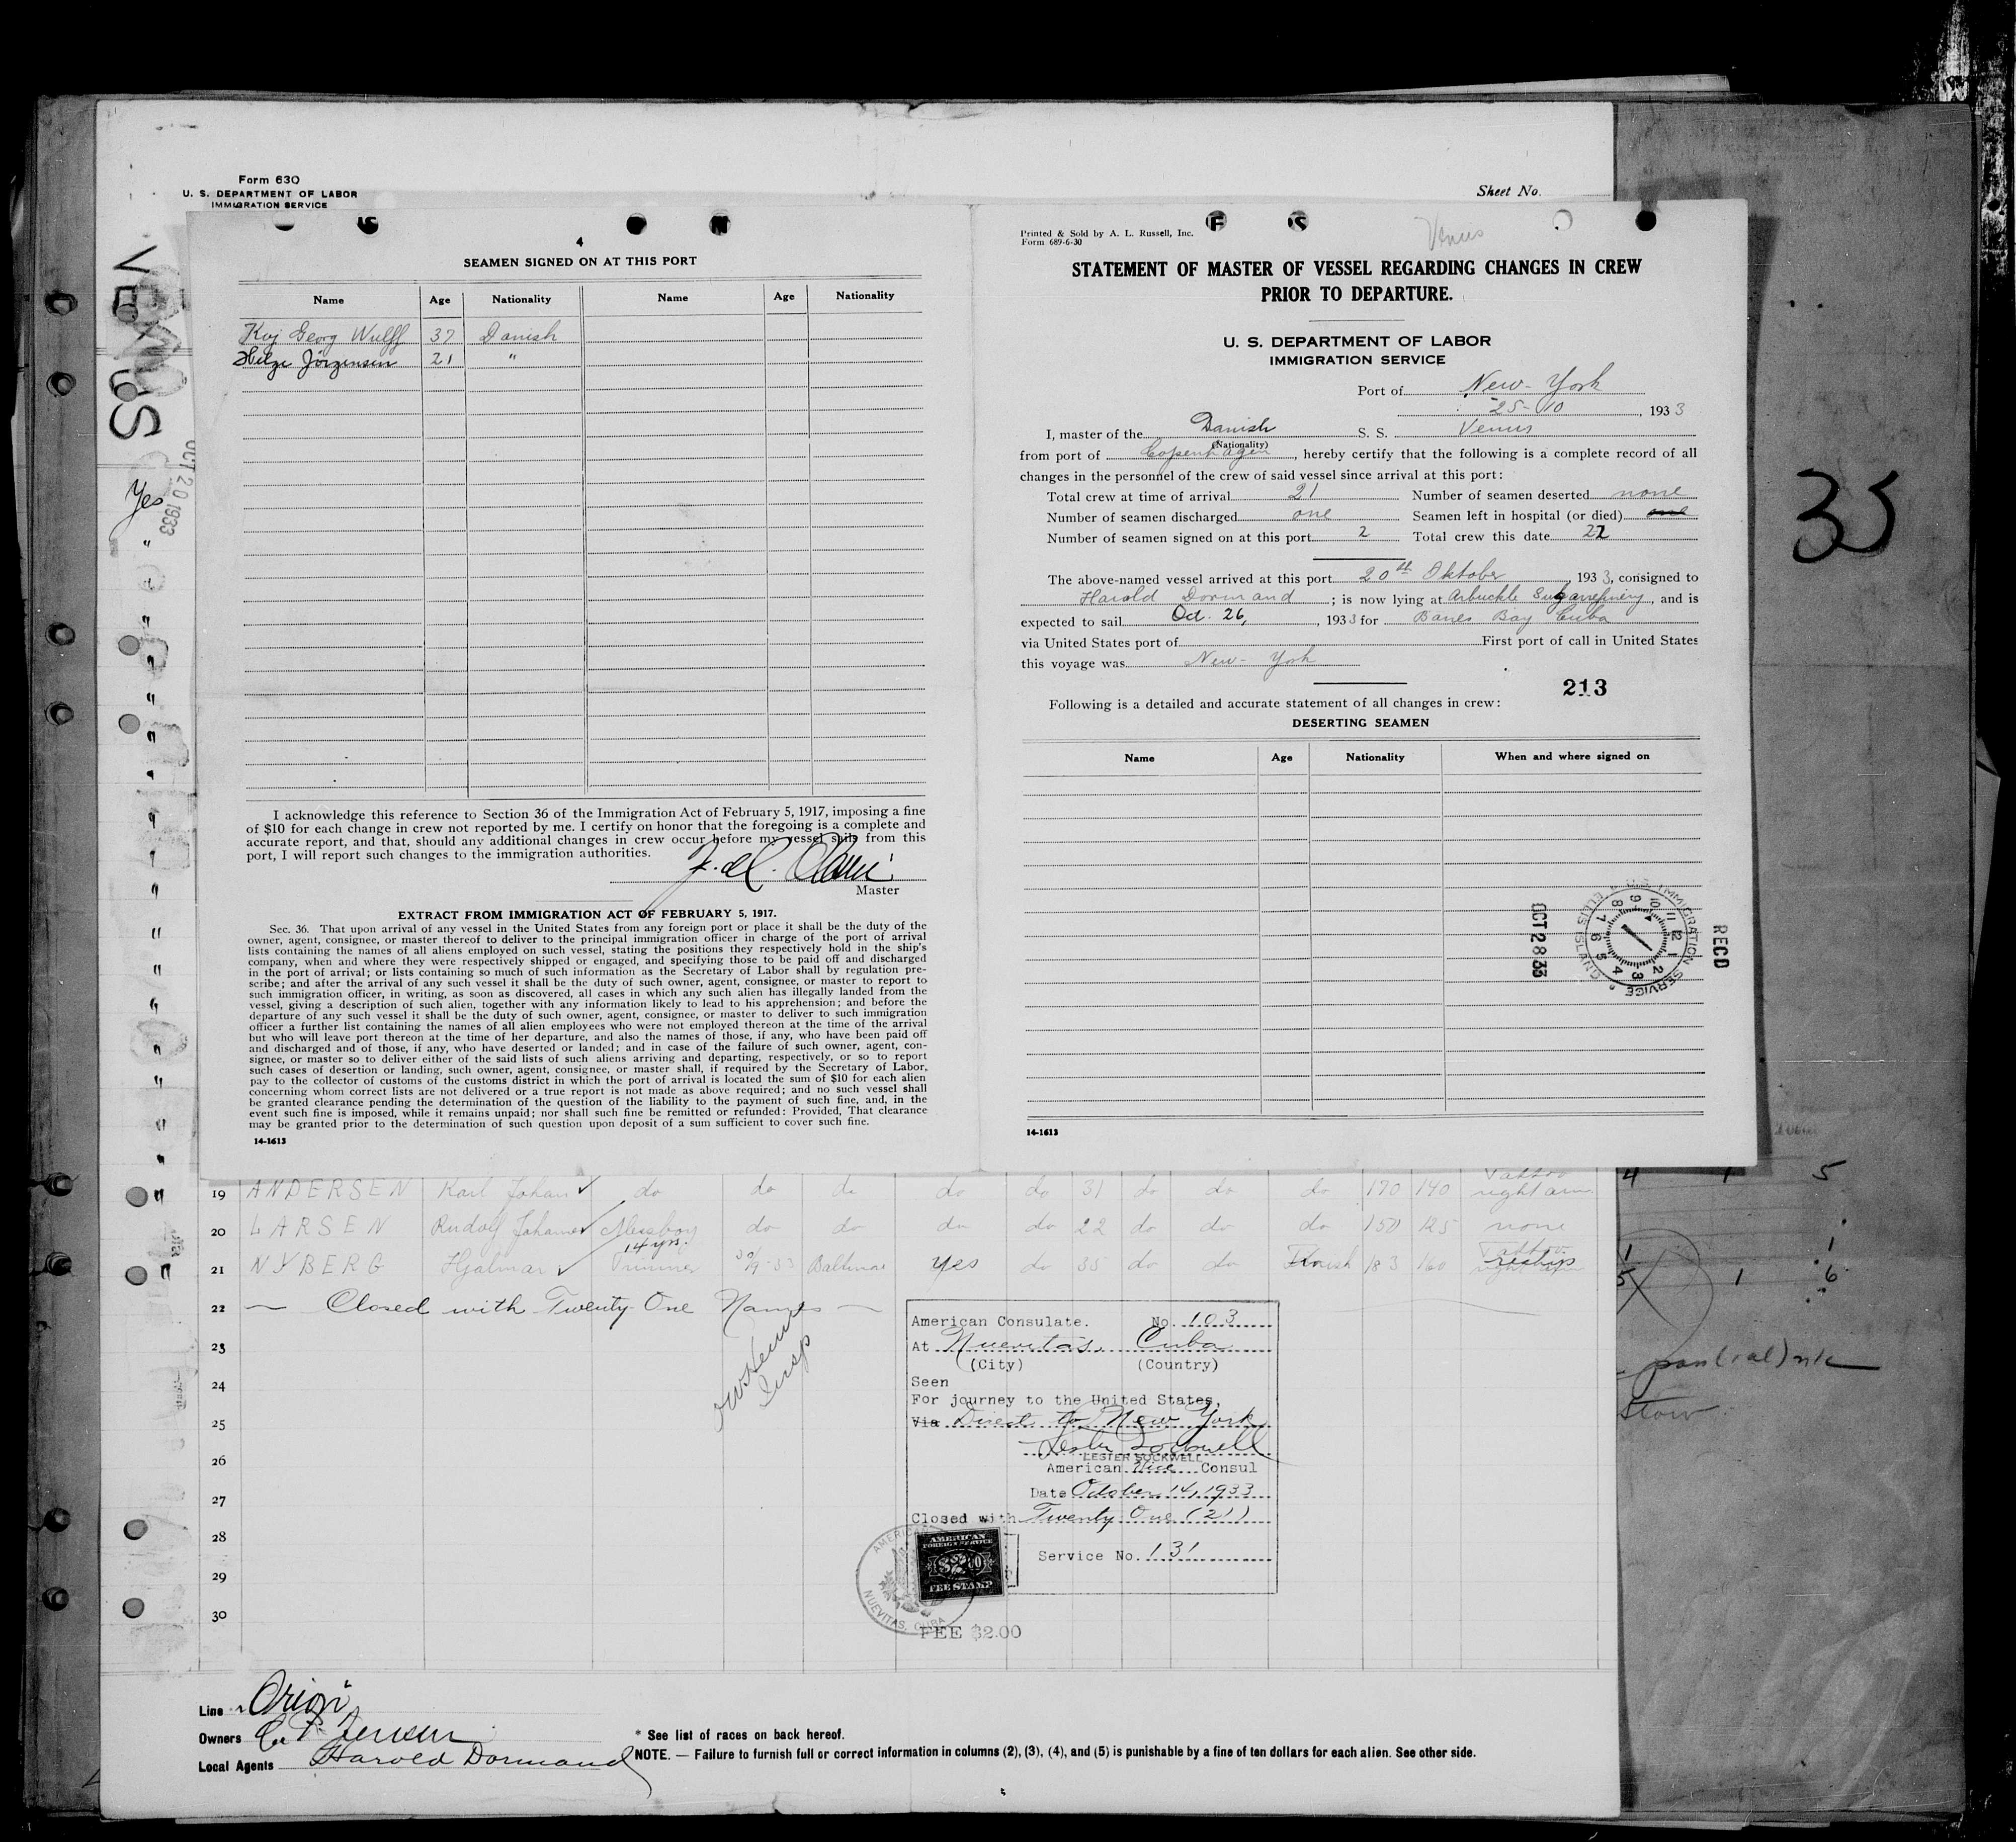 Form 630
U. S. DEPARTMENT OF LABOR
IMMIGRATION SERVICE
Sheet No.
VENUS
OCT 20 1933
Yes
4
SEAMEN SIGNED ON AT THIS PORT
Name Age Nationality Name Age Nationality
Kaj Georg Wulff 37 Danish
Helge Jörgensen 21 "
I acknowledge this reference to Section 36 of the Immigration Act of February 5, 1917, imposing a fine
of $10 for each change in crew not reported by me. I certify on honor that the foregoing is a complete and
accurate report, and that, should any additional changes in crew occur before my vessel sails from this
port, I will report such changes to the immigration authorities.
Master
EXTRACT FROM IMMIGRATION ACT OF FEBRUARY 5, 1917.
Sec. 36. That upon arrival of any vessel in the United States from any foreign port or place it shall be the duty of the
owner, agent, consignee, or master thereof to deliver to the principal immigration officer in charge of the port of arrival
lists containing the names of all aliens employed on such vessel, stating the positions they respectively hold in the ship's
company, when and where they were respectively shipped or engaged, and specifying those to be paid off and discharged
in the port of arrival; or lists containing so much of such information as the Secretary of Labor shall by regulation pre-
scribe; and after the arrival of any such vessel it shall be the duty of such owner, agent, consignee, or master to report to
such immigration officer, in writing, as soon as discovered, all cases in which any such alien has illegally landed from the
vessel, giving a description of such alien, together with any information likely to lead to his apprehension; and before the
departure of any such vessel it shall be the duty of such owner, agent, consignee, or master to deliver to such immigration
officer a further list containing the names of all alien employees who were not employed thereon at the time of the arrival
but who will leave port thereon at the time of her departure, and also the names of those, if any, who have been paid off
and discharged and of those, if any, who have deserted or landed; and in case of the failure of such owner, agent, con-
signee, or master so to deliver either of the said lists of such aliens arriving and departing, respectively, or so to report
such cases of desertion or landing, such owner, agent, consignee, or master shall, if required by the Secretary of Labor,
pay to the collector of customs of the customs district in which the port of arrival is located the sum of $10 for each alien
concerning whom correct lists are not delivered or a true report is not made as above required; and no such vessel shall
be granted clearance pending the determination of the question of the liability to the payment of such fine, and, in the
event such fine is imposed, while it remains unpaid; nor shall such fine be remitted or refunded: Provided, That clearance
may be granted prior to the determination of such question upon deposit of a sum sufficient to cover such fine.
14-1613
Printed & Sold by A. L. Russell, Inc.
Form 689-6-30
Venus
STATEMENT OF MASTER OF VESSEL REGARDING CHANGES IN CREW
PRIOR TO DEPARTURE.
U. S. DEPARTMENT OF LABOR
IMMIGRATION SERVICE
Port of New-York
25-10, 1933
I, master of the Danish S. S. Venus
(Nationality)
from port of Copenhagen, hereby certify that the following is a complete record of all
changes in the personnel of the crew of said vessel since arrival at this port:
Total crew at time of arrival 21 Number of seamen deserted none
Number of seamen discharged one Seamen left in hospital (or died) one
Number of seamen signed on at this port 2 Total crew this date 22
The above-named vessel arrived at this port 20th Oktober, 1933, consigned to
Harold Dormand; is now lying at Arbuckle Sugarrefinery, and is
expected to sail Oct. 26, 1933 for Banes Bay Cuba
via United States port of First port of call in United States
this voyage was New-York
213
Following is a detailed and accurate statement of all changes in crew:
DESERTING SEAMEN
Name Age Nationality When and where signed on
RECD
U.S. IMMIGRATION SERVICE
ELLIS ISLAND
OCT 28 33
14-1613
35
19 ANDERSEN Karl Johan do do do do do 31 do do do 170 140 Tattoo right arm
20 LARSEN Rudolf Johannes Messboy do do do do 22 do do do 150 125 none
21 NYBERG Hjalmar 14 yrs. Trimmer Yes do 35 do do 183 160 Tattoo reship
22 — Closed with Twenty One Names —
23
24
25
26
27
28
29
30
Insp
American Consulate. No. 103
At Nuevitas, Cuba
(City) (Country)
Seen
For journey to the United States,
Via Direct to New York
LESTER SOCKWELL
American Vice Consul
Date October 14, 1933
Closed with Twenty One (21)
Service No. 131
AMERICAN
FOREIGN SERVICE
FEE STAMP
NUEVITAS, CUBA
FEE $2.00
Line "Orion"
Owners C. P. Jensen
Local Agents Harold Dormand
* See list of races on back hereof.
NOTE. — Failure to furnish full or correct information in columns (2), (3), (4), and (5) is punishable by a fine of ten dollars for each alien. See other side.